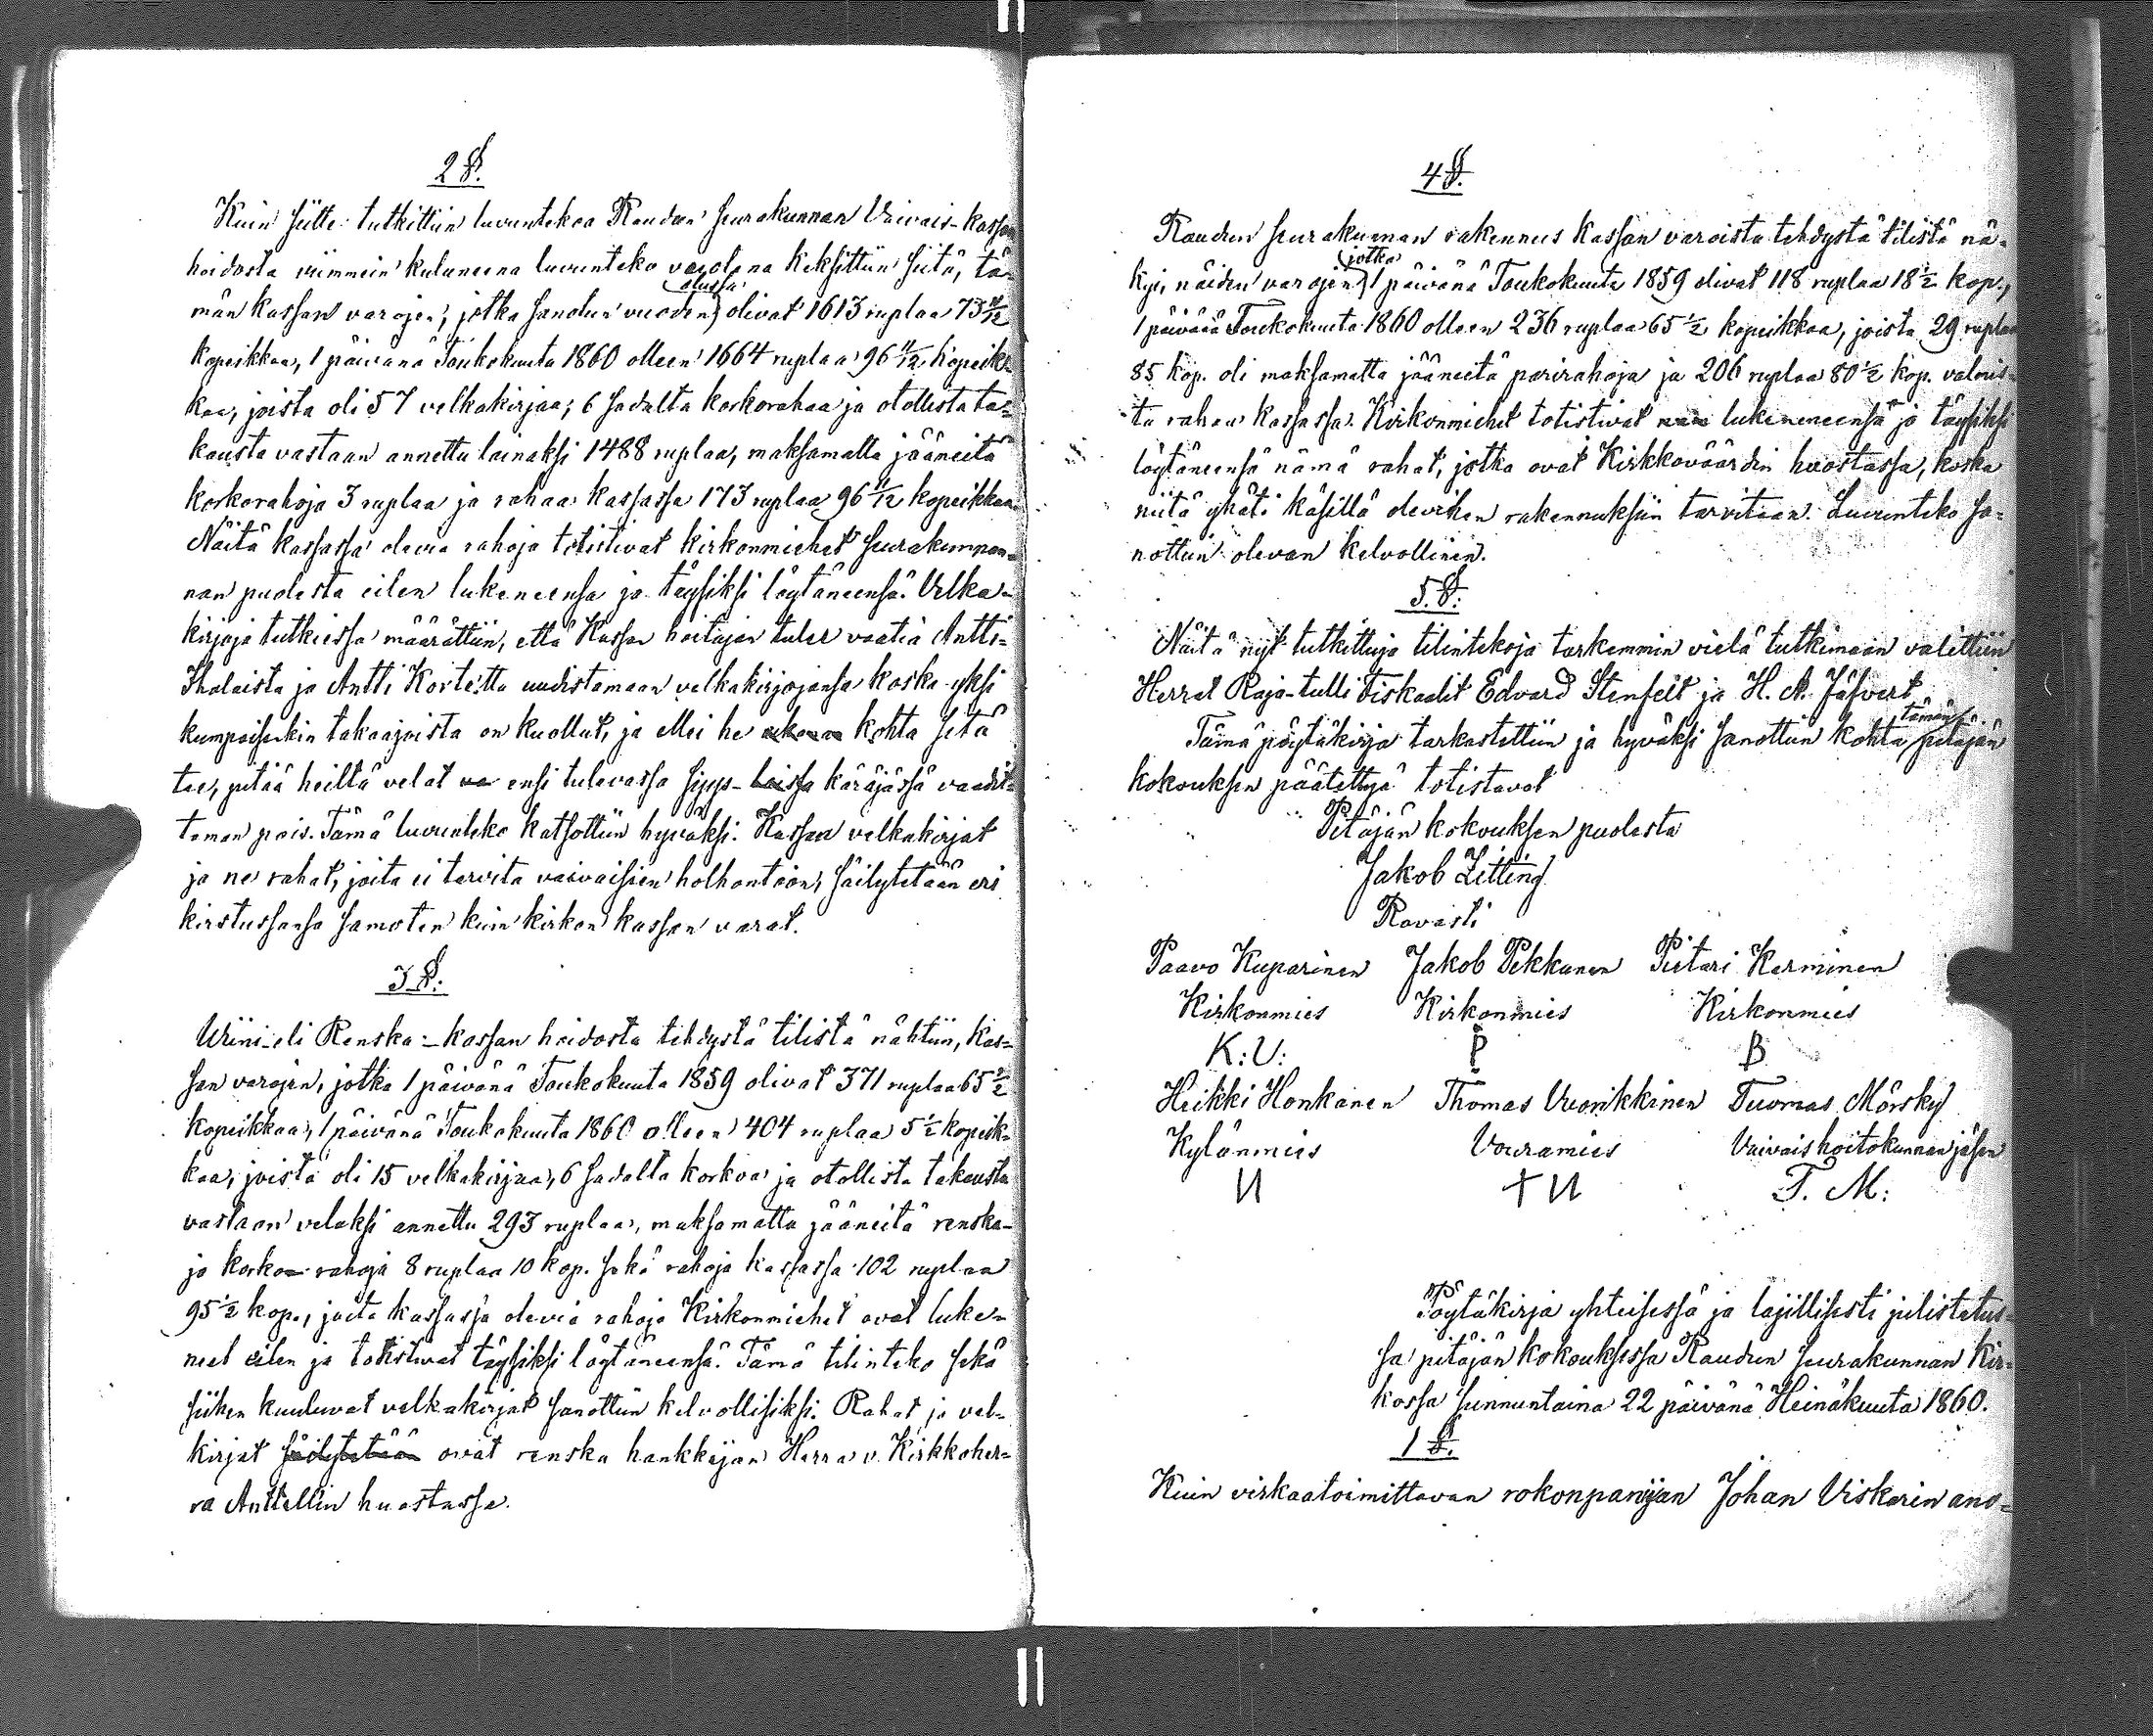 2 §.
Kuin siitte tutkittiin luvunteko Raudun seurakunnan Vaivais-kassan
hoidosta viimmein kuluneena luvunteko vuotena keksittiin siitä, tä-
män kassan varojen, jotka sanotun vuoden alussa olivat 1613 ruplaa 73 11/12
kopeikkaa, 1 päivänä Toukokuuta 1860 olleen 1664 ruplaa 96 11/12 kopeik-
kaa, joista oli 57 velkakirjaa, 6 sadalta korkorahaa ja otollista ta-
kausta vastaan annettu lainaksi 1488 ruplaa, maksamatta jääneitä
korkorahoja 3 ruplaa ja rahaa kassassa 173 ruplaa 96 11/12 kopeikkaa.
Näitä kassassa olevia rahoja totistivat kirkonmiehet seurakunnan-
nan puolesta eilen lukeneensa ja täysiksi löytäneensä. Velka-
kirjoja tutkiessa määrättiin, että Kassan hoitajan tulee vaatia Antti-
Ihalaista ja Antti Kortetta uudistamaan velkakirjojansa koska yksi
kumpaisenkin takaajoista on kuollut, ja ellei he kohta sitä
tee, pitää heiltä velat ensi tulevassa syys- käräjässä vaadit-
taman pois. Tämä luvunteko katsottiin hyväksi. Kassan velkakirjat
ja ne rahat, joita ei tarvita vaivaisien holhontaan, säilytetään eri
kirstussansa samoten kuin kirkon kassan varat.
3 §.
Viini- eli Renska-kassan hoidosta tehdystä tilistä nähtiin, kas-
san varojen, jotka 1 päivänä Toukokuuta 1859 olivat 371 ruplaa 65 1/2
kopeikkaa, 1 päivänä Toukokuuta 1860 olleen 404 ruplaa 5 1/2 kopeik-
kaa, joista oli 15 velkakirjaa, 6 sadalta korkoa ja otollista takausta
vastaan velaksi annettu 293 ruplaa, maksamatta jääneitä renska-
ja korko rahoja 8 ruplaa 10 kop. sekä rahoja kassassa 102 ruplaa
95 1/2 kop., joita kassassa olevia rahoja Kirkonmiehet ovat luke-
neet eilen ja totistivat täysiksi löytäneensä. Tämä tilinteko sekä
siihen kuuluvat velkakirjat sanottiin kelvollisiksi. Rahat ja vel-
kirjat säilytetään ovat renska hankkijan Herra v. Kirkkoher-
ra Anttellin huostassa.
4 §.
Raudun seurakunnan rakennus kassan varoista tehdystä tilistä nä-
kyi, näiden varojen, jotka 1 päivänä Toukokuuta 1859 olivat 118 ruplaa 18 1/2 kop.,
1 päivänä Toukokuuta 1860 olleen 236 ruplaa 65 1/2 kopeikkaa, joista 29 ruplaa
85 kop. oli maksamatta jääneitä parirahoja ja 206 ruplaa 80 1/2 kop. valmis-
ta rahaa kassassa. Kirkonmiehet totistivat lukeneneensä ja täysiksi
löytäneensä nämä rahat, jotka ovat Kirkkoväärdin huostassa, koska
niitä yhäti käsillä olevihen rakennuksiin tarvitaan. Luvunteko sa-
nottiin olevan kelvollinen.
5 §.
Näitä nyt tutkittuja tilintekoja tarkemmin vielä tutkimaan valittiin
Herrat Raja-tulli Fiskaalit Edvard Stenfelt ja H. A. Jäfvert.
Tämä pöytäkirja tarkastettiin ja hyväksi sanottiin kohta tämän pitäjän
kokouksen päätettyä totistavat
Pitäjän kokouksen puolesta
Jakob Zitting
Rovasti
Paavo Kuparinen Jakob Pekkanen Pietari Karminen
Kirkonmies Kirkonmies Kirkonmies
K: V: P B
Heikki Honkanen Thomas Vuorikkinen Tuomas Mörsky
Kylänmies Vouramies Vaivaishoitokunnan jäsen
T. M:
Pöytäkirja yhteisessä ja lajillisesti julistetus-
sa pitäjän kokouksessa Raudun seurakunnan Kir-
kossa sunnuntaina 22 päivänä Heinäkuuta 1860.
1 §.
Kuin virkaatoimittavan rokonpanijan Johan Viskarin ano-